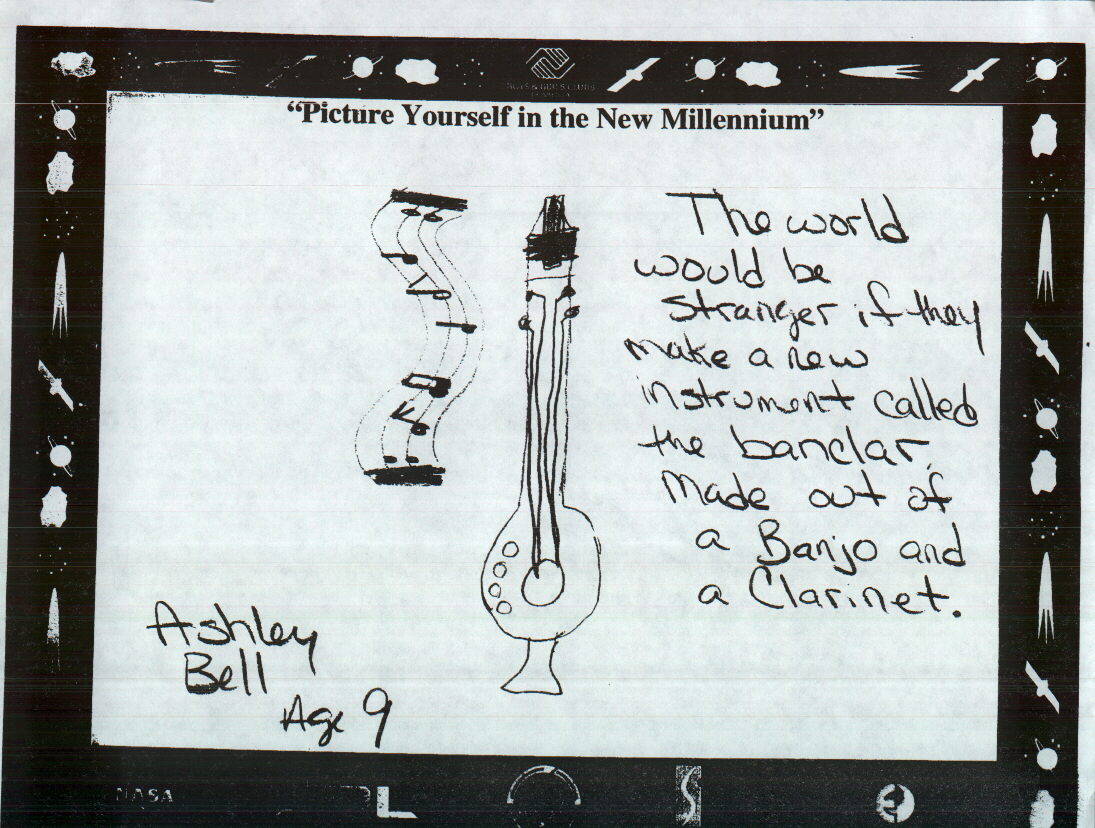 BOYS & GIRLS CLUBS
“Picture Yourself in the New Millennium”
The world
would be
stranger if they
make a new
instrument called
the banclar.
Made out of
a Banjo and
a Clarinet.
Ashley
Bell
Age 9
NASA